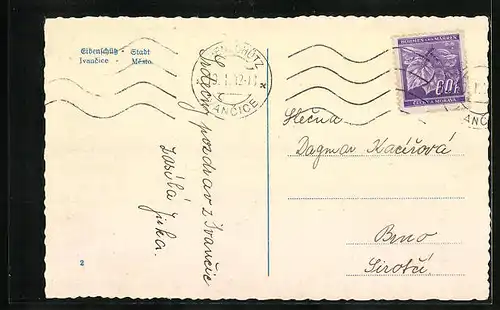 Eibenschütz - Stadt
Ivančice - Město
IVANČICE
BÖHMEN UND MÄHREN
60 h
ČECHY A MORAVA
Srdečný pozdrav z Ivančic
zasílá Jirka.
Slečna
Dagmar Kacířová
Brno
Sirotčí
2